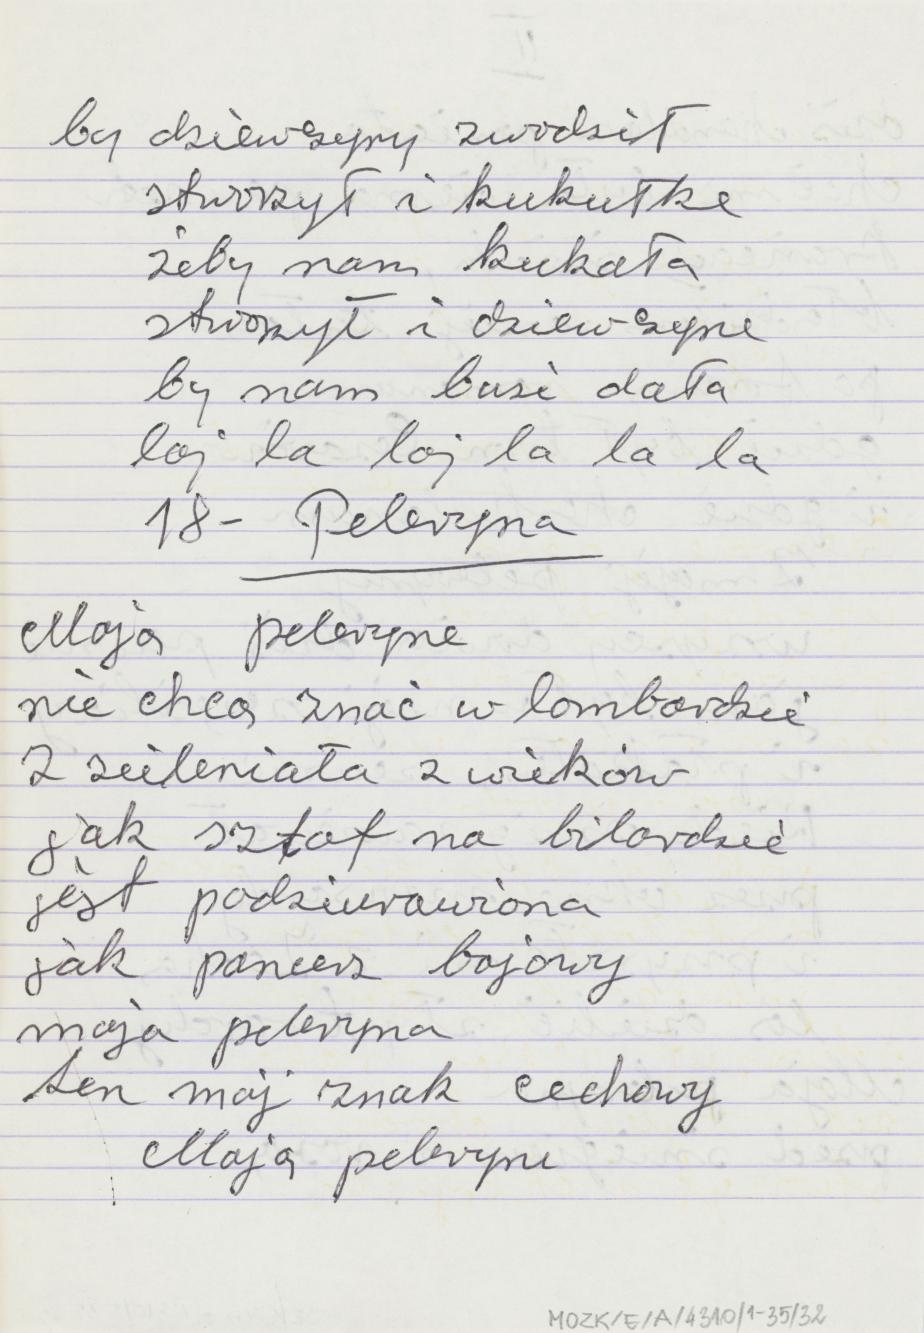 by dziewczyny zwodził
stworzył i kukułkę
żeby nam kukała
stworzył i dziewczynę
by nam busi dała
loj la loj la la la
18- Peleryna
Moją pelerynę
nie chcą znać w lombardzie
Z zieleniała z wieków
jak sztof na bilardzie
jest podziurawiona
jak pancerz bojowy
moja peleryna
ten mój znak cechowy
Moją pelerynę
MOZK/E/A/4310/1-35/32